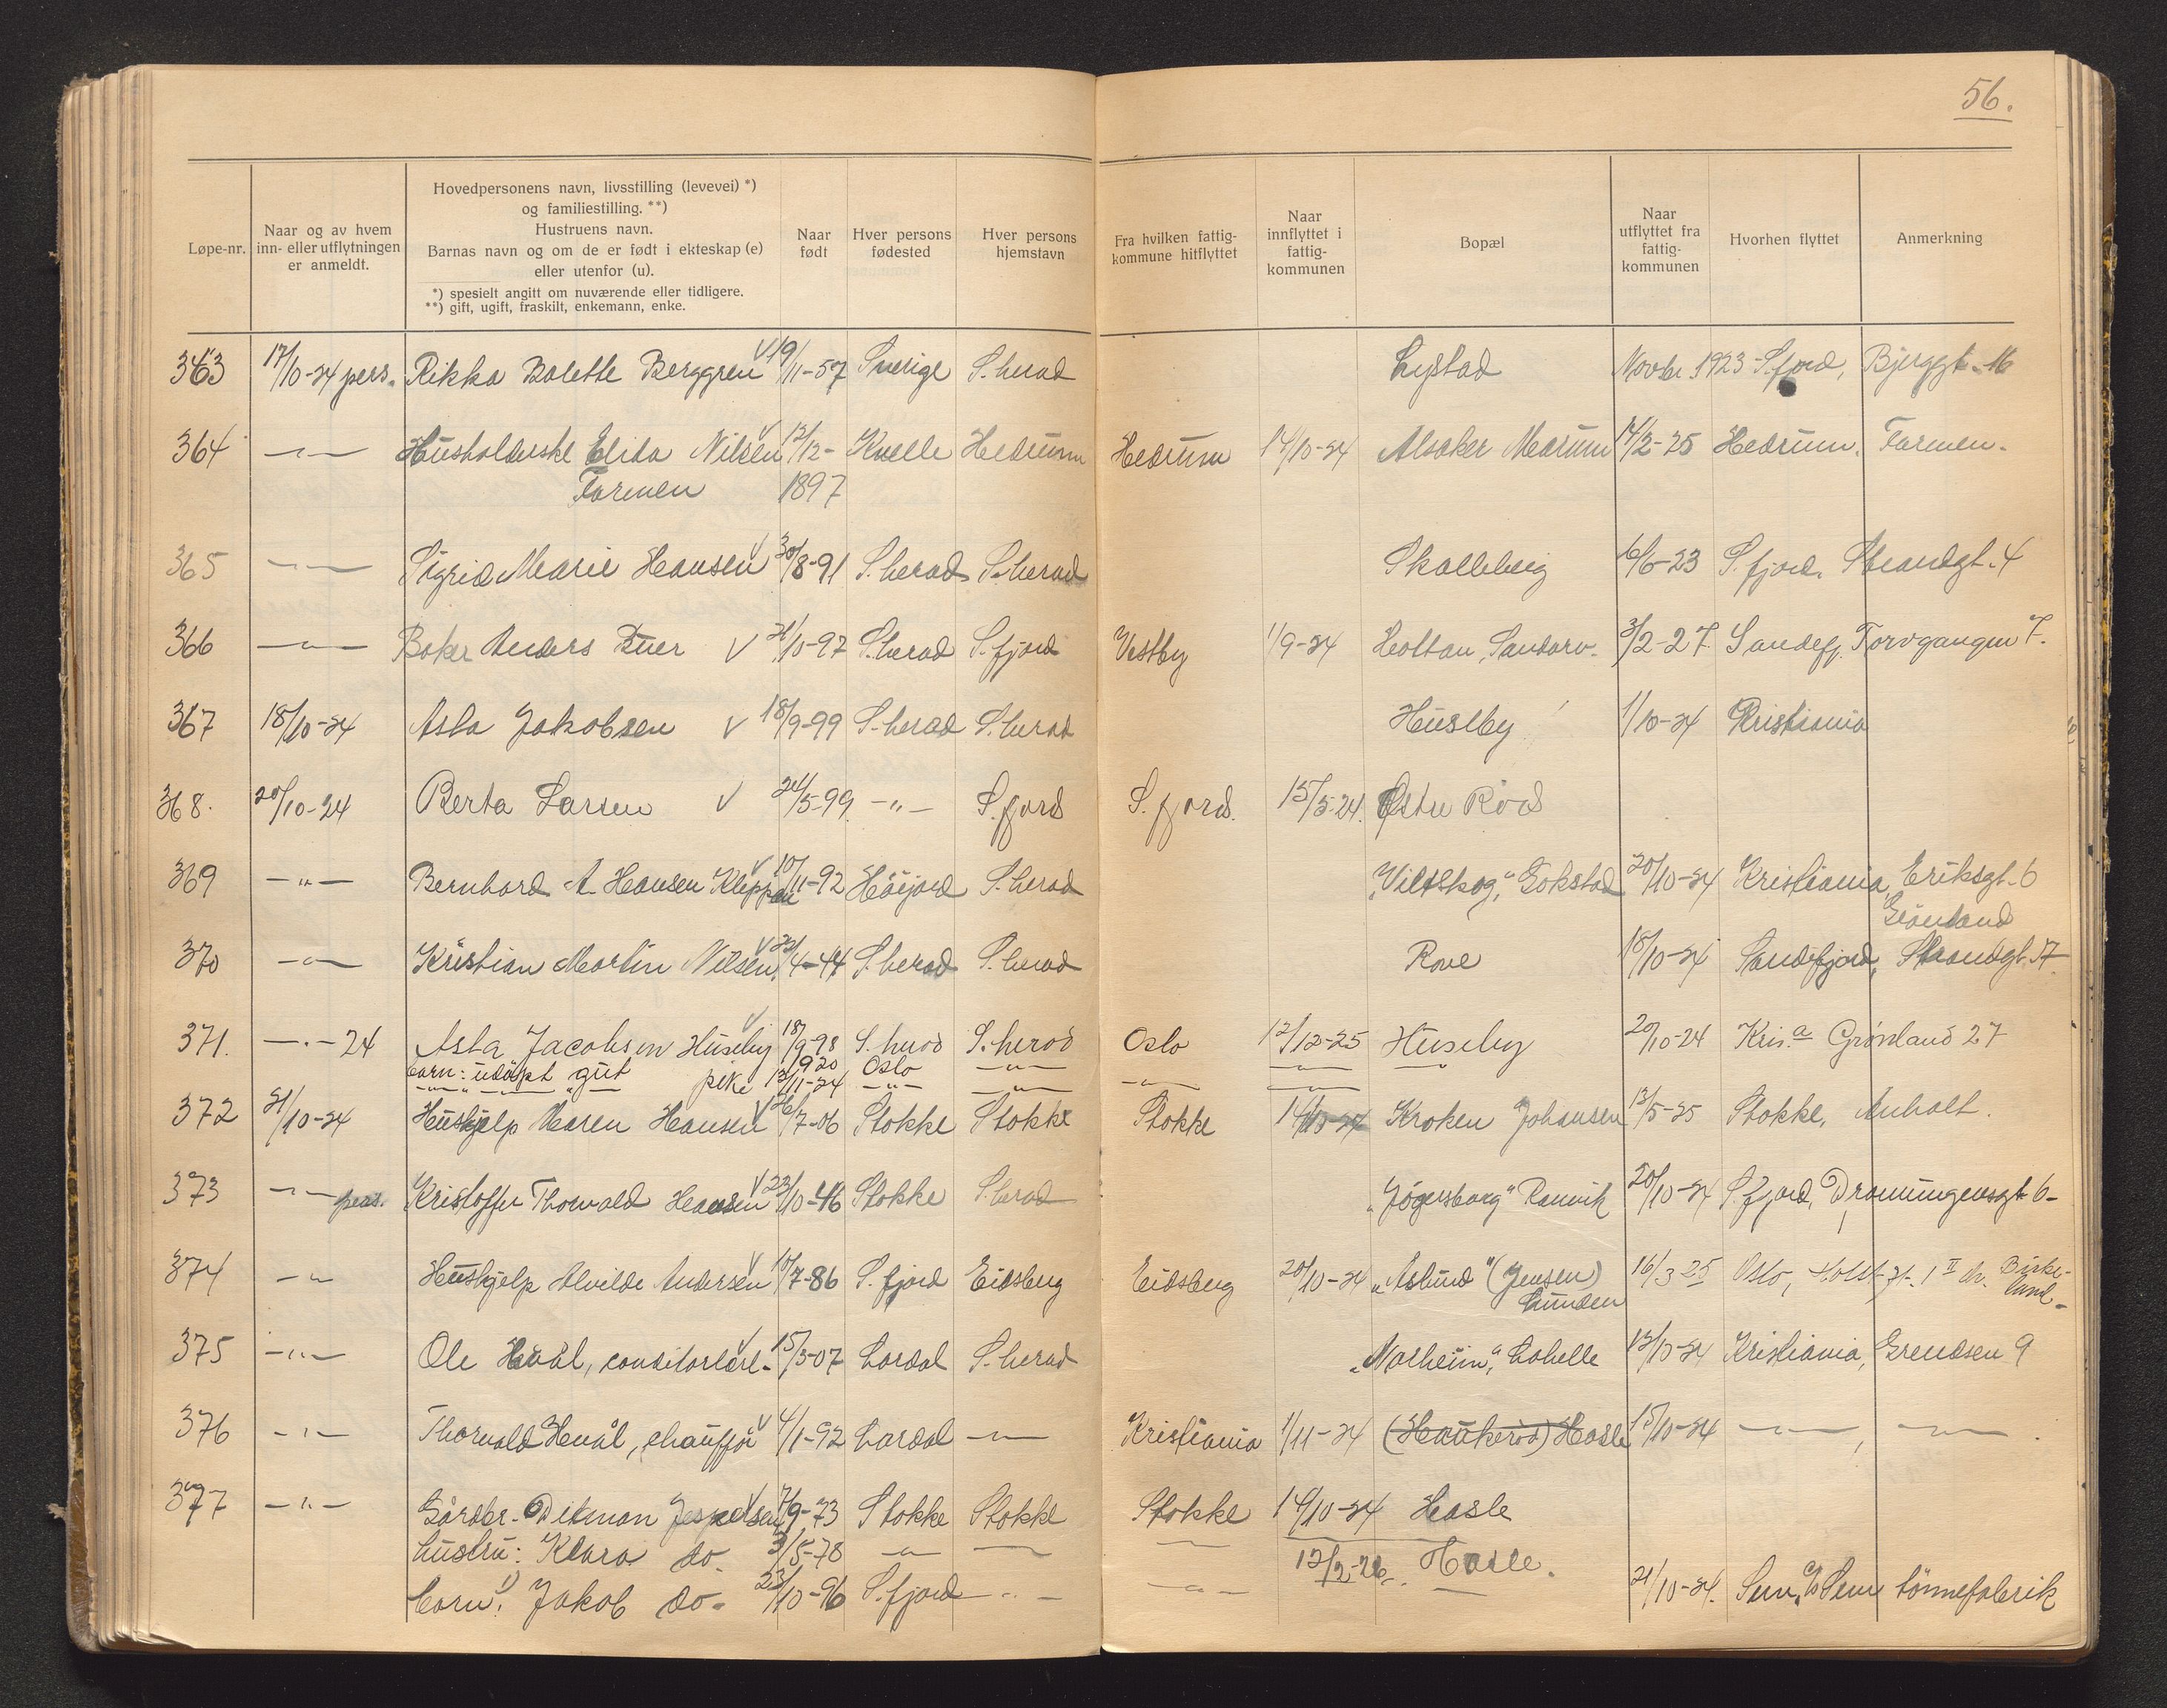 56.
Løpe-nr.
Naar og av hvem
inn- eller utflytningen
er anmeldt.
Hovedpersonens navn, livsstilling (levevei) *)
og familiestilling. **)
Hustruens navn.
Barnas navn og om de er født i ekteskap (e)
eller utenfor (u).
*) spesielt angitt om nuværende eller tidligere.
**) gift, ugift, fraskilt, enkemann, enke.
Naar
født
Hver persons
fødested
Hver persons
hjemstavn
Fra hvilken fattig-
kommune hitflyttet
Naar
innflyttet i
fattig-
kommunen
Bopæl
Naar
utflyttet fra
fattig-
kommunen
Hvorhen flyttet
Anmerkning
363 17/10-24 pers. Rikka Bolette Berggren V 19/11-57 Sverige S.herad Lystad Novbr. 1923 S.fjord, Bjerggt. 16
364 -"- Husholderske Elida Nilsen V 12/12- Kvelle Hedrum Hedrum 14/10-24 Alsaker Marum 14/2-25 Hedrum. Farmen.
Farmen 1897
365 -"- Sigrid Marie Hansen V 30/8-91 S.herad S.herad Skalleberg 16/6-23 S.fjord. Strandgt. 4
366 -"- Baker Anders Buer V 21/10-97 S.herad S.fjord Vestby 1/9-24 Holtan, Sandarv. 3/2-27. Sandefj. Torvgangen 7.
367 18/10-24 Asta Jakobsen V 18/9-99 S.herad S.herad Huseby 1/10-24 Kristiania
368. 20/10-24 Berta Larsen V 24/5-99. -"- S.fjord S.fjord. 15/5-24. Østre Röd
369 -"- Bernhard A Hansen Kleppan V 10/11-92 Höijord S.herad "Viltskog," Gokstad 20/10-24 Kristiania, Eriksgt. 6
Grönland
370 -"- Kristian Martin Nilsen V 22/4-44 S.herad S.herad Rove 18/10-24 Sandefjord, Strandgt. 17
371. -"- 24 Asta Jacobsen Huseby V 18/9-98 S.herod S.herod Oslo 12/12-25 Huseby 20/10-24 Kris.a Grønland 27
barn: udöpt gut 1920 Oslo -"-
-"- -"- pike 12/11-24 -"- -"- -"- -"-
372 21/10-24 Hushjelp Maren Hansen V 26/7-06 Stokke Stokke Stokke 14/10-24 Kroken Johansen 12/5-25 Stokke, Anholt.
373 -"- pers. Kristoffer Thorvald Hansen V 23/10-46 Stokke S.herad "Jögersborg" Ranvik 20/10-24 S.fjord, Dronningensgt 6-
374 -"- Hushjelp Alvilde Andersen V 10/7-86 S.fjord Eidsberg Eidsberg 20/10-24 "Aslund" (Jensen) 16/3 25 Oslo, Holst gt. 1 II Birke-
Lunden lund-
375 -"- Ole Hvål, conditorlærl. V 15/3-07 Lardal S.herad "Solheim," Lahelle 12/10-24 Kristiania, Grensen 9
376 -"- Thorvald Hvål, chauffør V 4/1-92 Lardal -"- Kristiania 1/11-24 (Haukeröd) Hasle 15/10-24 -"-, -"-.
377 -"- Gårdbr. Ditman Jespersen V 7/9-73 Stokke Stokke Stokke 14/10-24 Hasle
hustru: Klara do. 3/5-78 -"- -"- -"- 12/2-26. Hasle.
barn: 1) Jakob do. 23/10-96 S.fjord -"- -"- 21/10-24. Sem, % Sem tönnefabrik